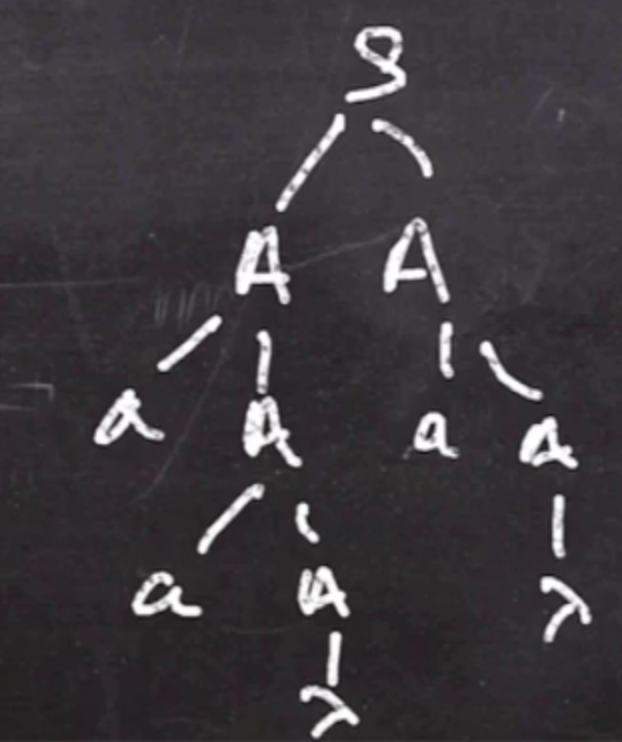 S
A A
a A a A
a A λ
λ